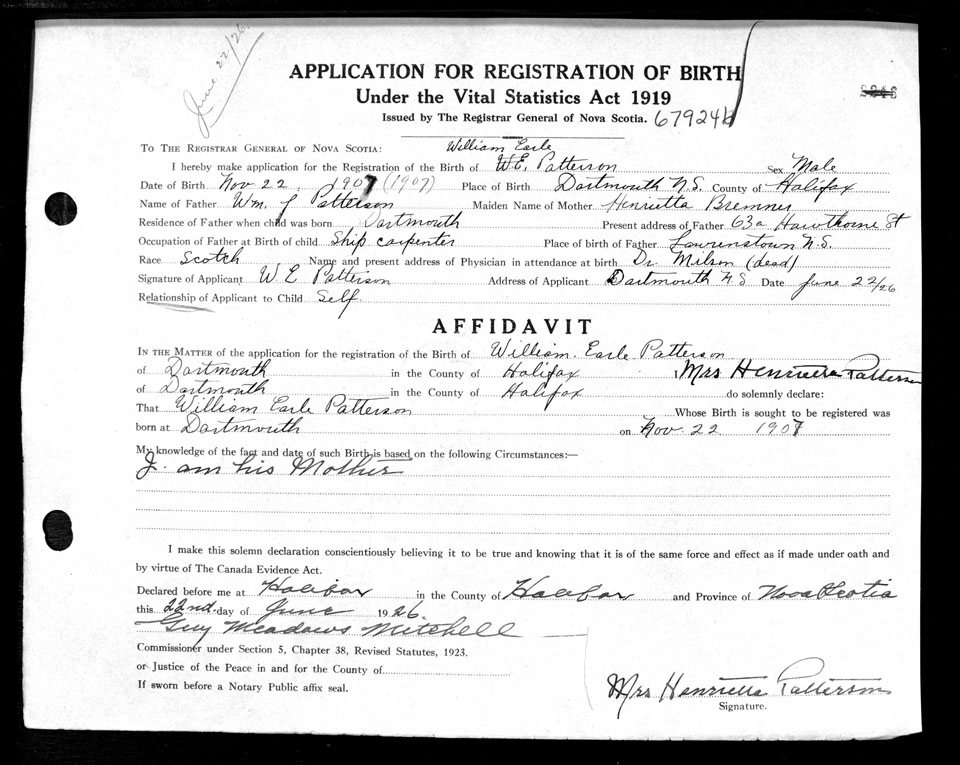 June 22/26.
APPLICATION FOR REGISTRATION OF BIRTH
Under the Vital Statistics Act 1919
Issued by The Registrar General of Nova Scotia. 67924½
TO THE REGISTRAR GENERAL OF NOVA SCOTIA: William Earle
I hereby make application for the Registration of the Birth of W.E. Patterson Sex Male
Date of Birth Nov 22, 1907 (1907) Place of Birth Dartmouth N.S. County of Halifax
Name of Father Wm. J Patterson Maiden Name of Mother Henrietta Bremner
Residence of Father when child was born Dartmouth Present address of Father 63a Hawthorne St
Occupation of Father at Birth of child Ship carpenter Place of birth of Father Lawrenstown N.S.
Race Scotch Name and present address of Physician in attendance at birth Dr. Milson (dead)
Signature of Applicant W E Patterson Address of Applicant Dartmouth N.S Date June 22/26
Relationship of Applicant to Child Self.
AFFIDAVIT
IN THE MATTER of the application for the registration of the Birth of William Earle Patterson
of Dartmouth in the County of Halifax , Mrs Henrietta Patterson
of Dartmouth in the County of Halifax do solemnly declare:
That William Earle Patterson Whose Birth is sought to be registered was
born at Dartmouth on Nov. 22 1907
My knowledge of the fact and date of such Birth is based on the following Circumstances:—
I am his Mother
I make this solemn declaration conscientiously believing it to be true and knowing that it is of the same force and effect as if made under oath and
by virtue of The Canada Evidence Act.
Declared before me at Halifax in the County of Halifax and Province of Nova Scotia
this 22nd day of June 1926.
Guy Meadows Mitchell
Commissioner under Section 5, Chapter 38, Revised Statutes, 1923.
or Justice of the Peace in and for the County of
If sworn before a Notary Public affix seal.
Mrs Henrietta Patterson
Signature.